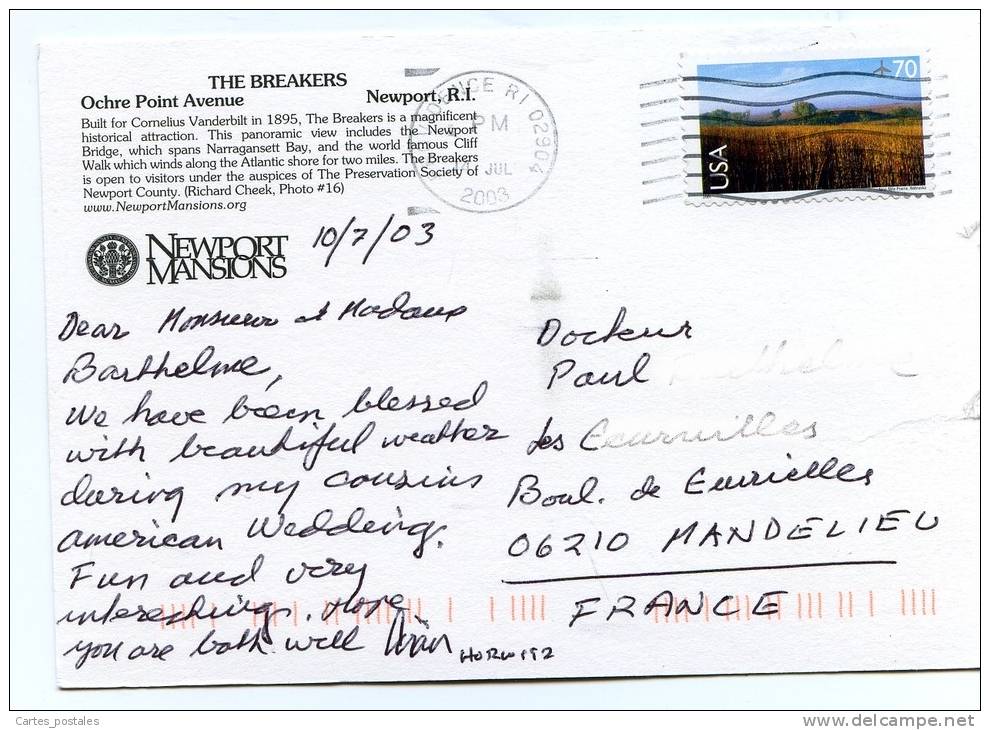 THE BREAKERS
Ochre Point Avenue Newport, R.I.
Built for Cornelius Vanderbilt in 1895, The Breakers is a magnificent
historical attraction. This panoramic view includes the Newport
Bridge, which spans Narragansett Bay, and the world famous Cliff
Walk which winds along the Atlantic shore for two miles. The Breakers
is open to visitors under the auspices of The Preservation Society of
Newport County. (Richard Cheek, Photo #16)
www.NewportMansions.org
NEWPORT
MANSIONS
10/7/03
Dear Monsieur et Madame
Barthelme,
We have been blessed
with beautiful weather
during my cousins
american Wedding.
Fun and very
interesting. Hope
you are both well
HORWITZ
RI 02904
PM
JUL
2003
70
USA
Docteur
Paul
Les
Boul. de Eurielles
06210 MANDELIEU
FRANCE
Cartes_postales
http://www.delcampe.net